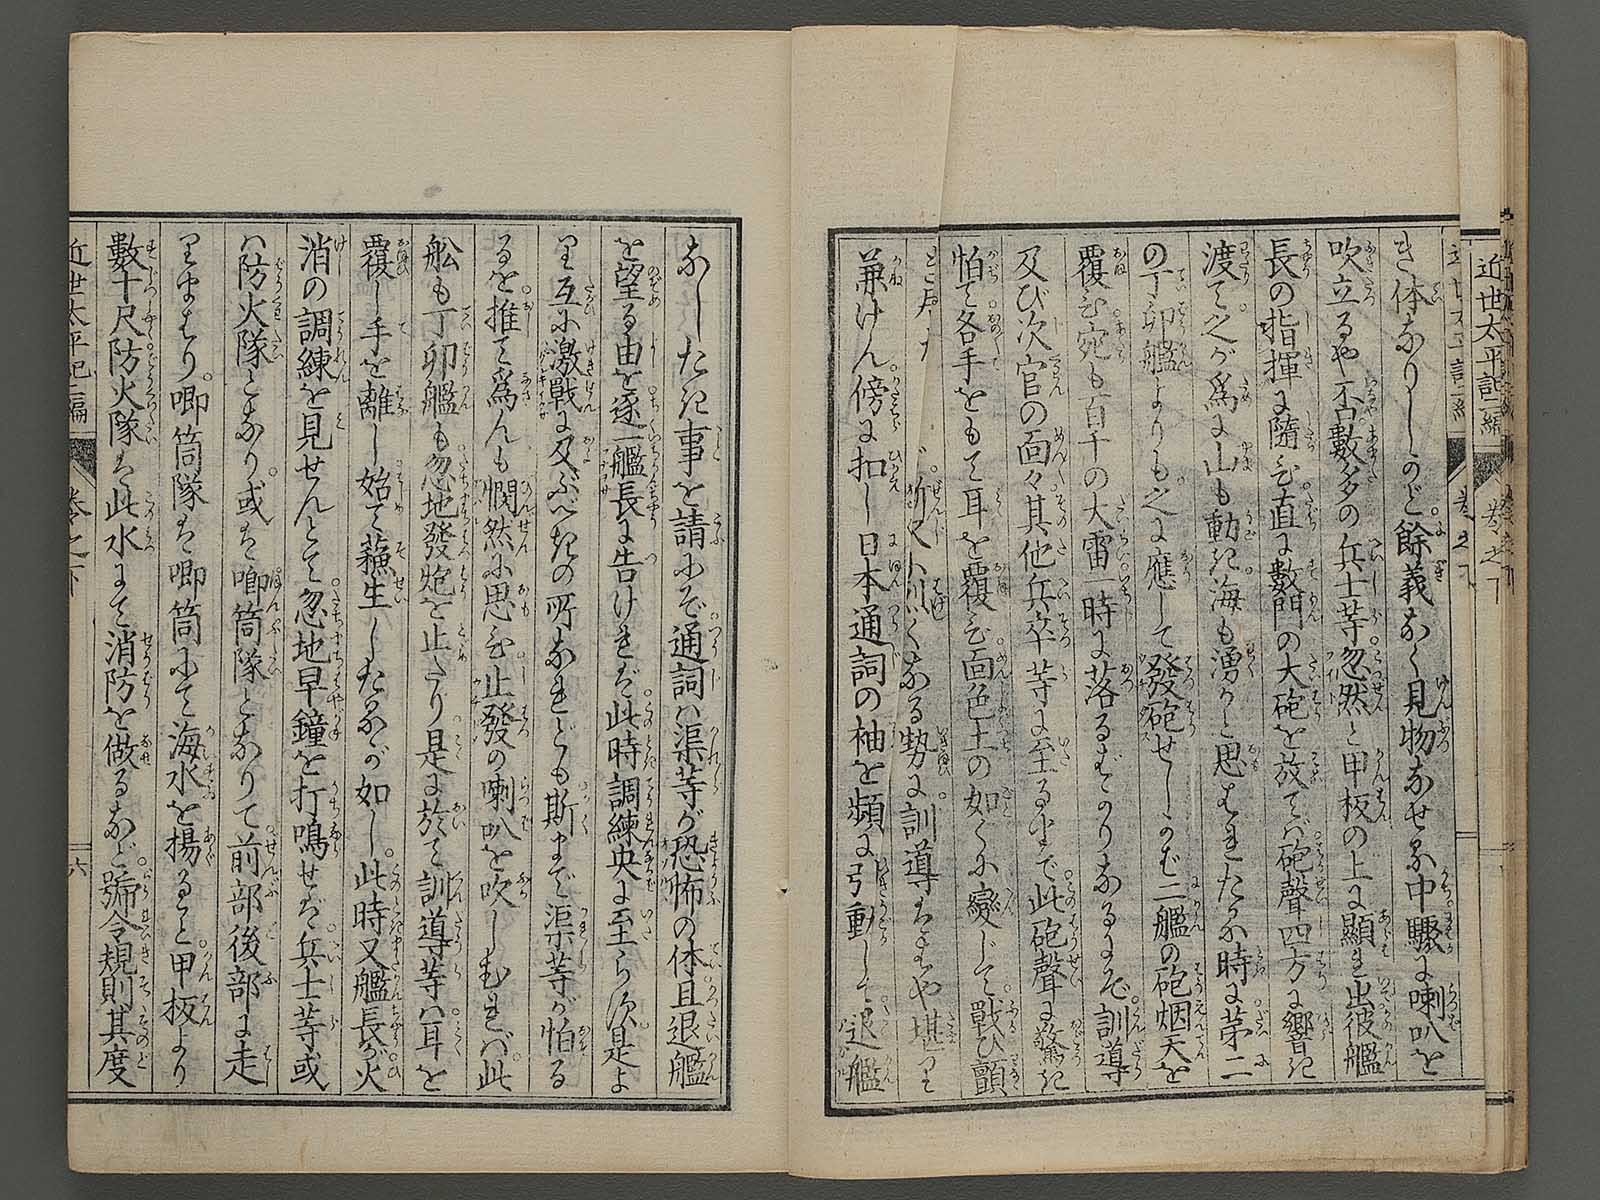 近世太平記二編
巻之下
き体なりしかど餘義なく見物なせる中驟に喇叭を
吹立るや否數多の兵士等忽然と甲板の上に顯れ出彼艦
長の指揮に隨ひ直に數門の大砲を放てば砲聲四方に響き
渡て之が爲に山も動き海も湧かと思はれたる時に第二
の丁卯艦よりも之に應して發砲せしかば二艦の砲烟天を
覆ひ宛も百千の大雷一時に落るばかりなるにぞ訓導
及び次官の面々其他兵卒等に至るまで此砲聲に驚き
怕て各手をもて耳を覆ひ面色土の如くに變じて戰ひ顫
なる勢に訓導はもはや堪
兼けん傍に扣し日本通詞の袖を頻に引動して退艦
なしたき事を請にぞ通詞は渠等が恐怖の体且退艦
を望る由を逐一艦長に告けれど此時調練央に至らず是よ
り互に激戰に及ぶべきの所なれども斯まで渠等が怕る
るを推て爲んも憫然に思ひ止發の喇叭を吹しむれば此
舩も丁卯艦も忽地發炮を止たり是に於て訓導等は耳を
覆し手を離し始て蘓生したるが如し此時又艦長が火
消の調練を見せんとて忽地早鐘を打鳴せば兵士等或
は防火隊となり或は喞筒隊となりて前部後部に走
りまはり喞筒隊は喞筒にて海水を揚ると甲板より
數十尺防火隊は此水にて消防を做るなど號令規則其度
近世太平記二編
巻之下
六